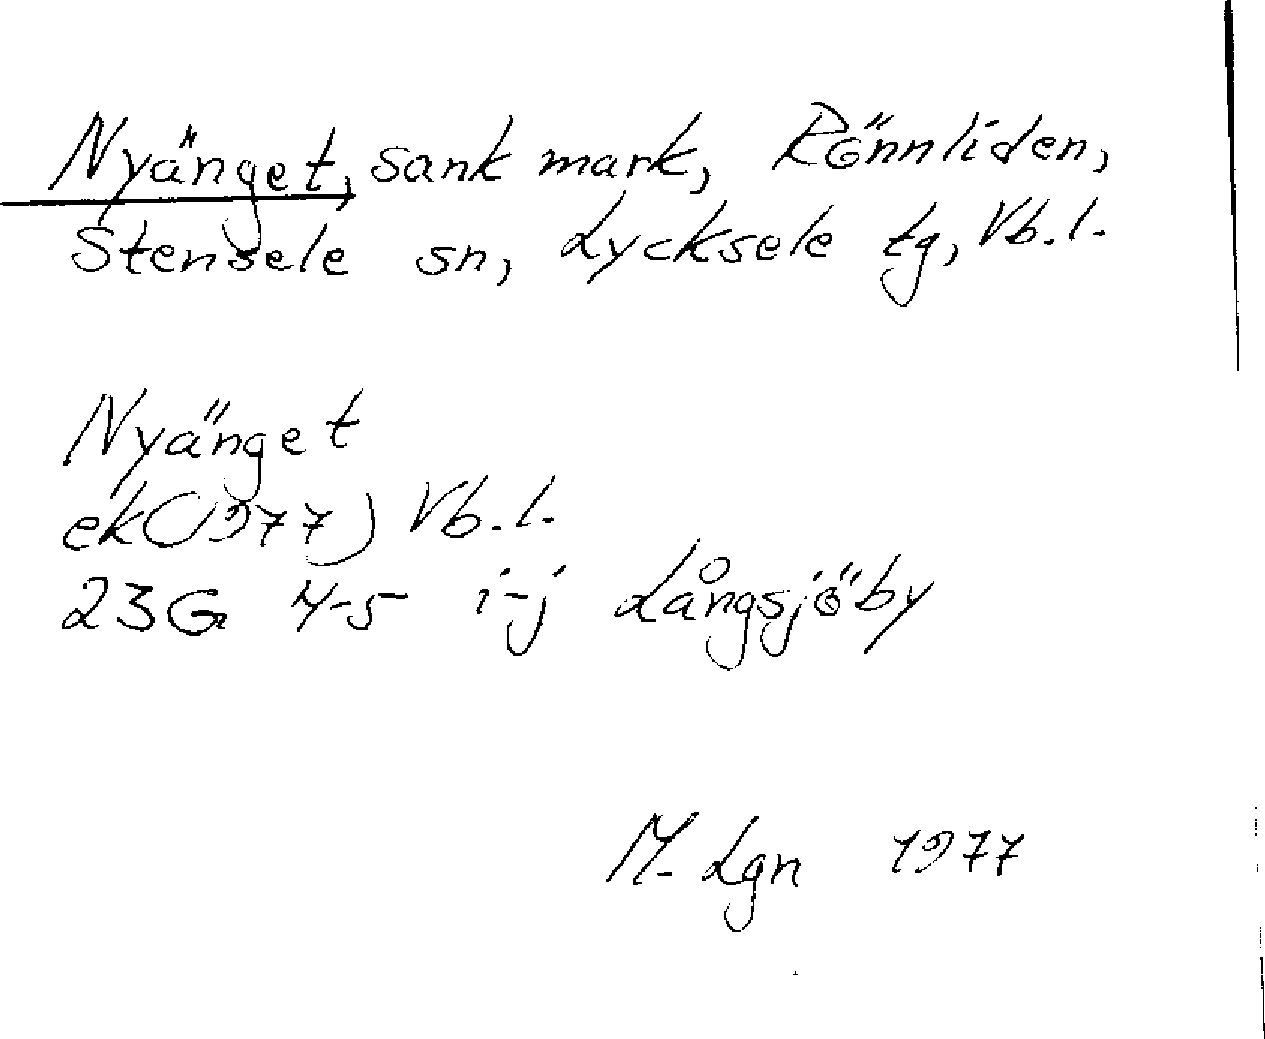 Nyänget, sank mark, Rönnliden,
Stensele sn, Lycksele tg, Vb.l.
Nyänget
ek(1977) Vb.l.
23G 4-5 i-j Långsjöby
M. Lgn 1977